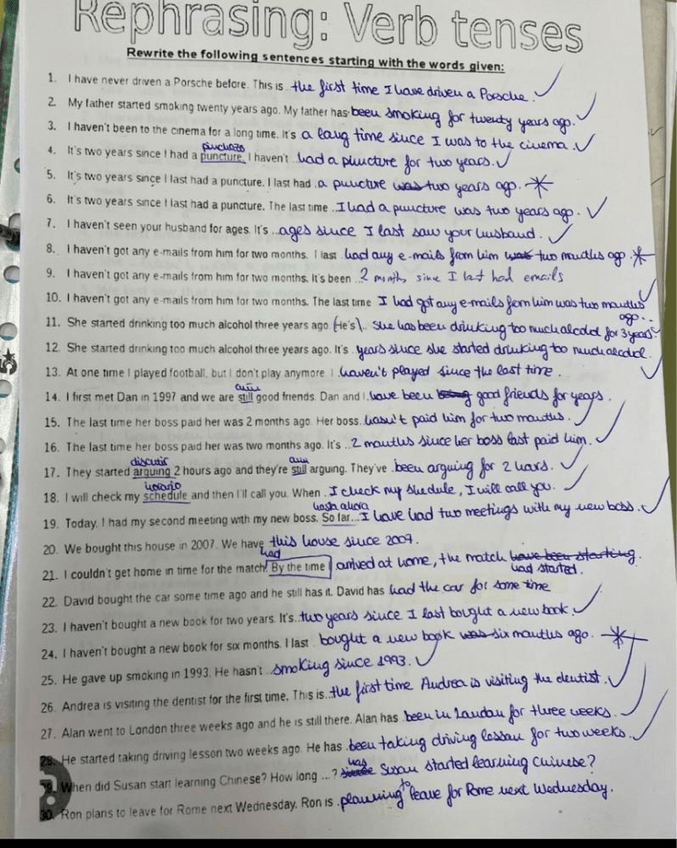 Rephrasing: Verb tenses
Rewrite the following sentences starting with the words given:
1. I have never driven a Porsche before. This is the first time I have driven a Porsche. ✓
2. My father started smoking twenty years ago. My father has been smoking for twenty years ago. ✓
3. I haven't been to the cinema for a long time. It's a long time since I was to the cinema. ✓
pinchazo
4. It's two years since I had a puncture. I haven't had a puncture for two years. ✓
5. It's two years since I last had a puncture. I last had a puncture was two years ago. *
6. It's two years since I last had a puncture. The last time ..I had a puncture was two years ago. ✓
7. I haven't seen your husband for ages. It's ...ages since I last saw your husband. ✓
8. I haven't got any e-mails from him for two months. I last .had any e-mails from him was two months ago. *
9. I haven't got any e-mails from him for two months. It's been ..2 months since I last had emails
10. I haven't got any e-mails from him for two months. The last time I had got any e-mails from him was two months ago. ✓
11. She started drinking too much alcohol three years ago. (He's). She has been drinking too much alcohol for 3 years. ✓
12. She started drinking too much alcohol three years ago. It's .years since she started drinking too much alcohol.
13. At one time I played football, but I don't play anymore. I haven't played since the last time. ✓
aún
14. I first met Dan in 1997 and we are still good friends. Dan and I have been good friends for years.
15. The last time her boss paid her was 2 months ago. Her boss hasn't paid him for two months. ✓
16. The last time her boss paid her was two months ago. It's ..2 months since her boss last paid him. ✓
discutir aún
17. They started arguing 2 hours ago and they're still arguing. They've .been arguing for 2 hours. ✓
horario
18. I will check my schedule and then I'll call you. When .I check my shedule, I will call you. ✓
hasta ahora
19. Today, I had my second meeting with my new boss. So far...I have had two meetings with my new boss. ✓
20. We bought this house in 2007. We have this house since 2007.
had
21. I couldn't get home in time for the match. By the time I arrived at home, the match have been starting.
had started.
22. David bought the car some time ago and he still has it. David has had the car for some time
23. I haven't bought a new book for two years. It's .two years since I last bought a new book. ✓
24. I haven't bought a new book for six months. I last bought a new book was six months ago. *
25. He gave up smoking in 1993. He hasn't ..smoking since 1993. ✓
26. Andrea is visiting the dentist for the first time. This is .the first time Andrea is visiting the dentist. ✓
27. Alan went to London three weeks ago and he is still there. Alan has been in London for three weeks. ✓
28. He started taking driving lesson two weeks ago. He has .been taking driving lesson for two weeks. ✓
has
29. When did Susan start learning Chinese? How long ...? Susan started learning chinese?
to
30. Ron plans to leave for Rome next Wednesday. Ron is .planning leave for Rome next Wednesday.